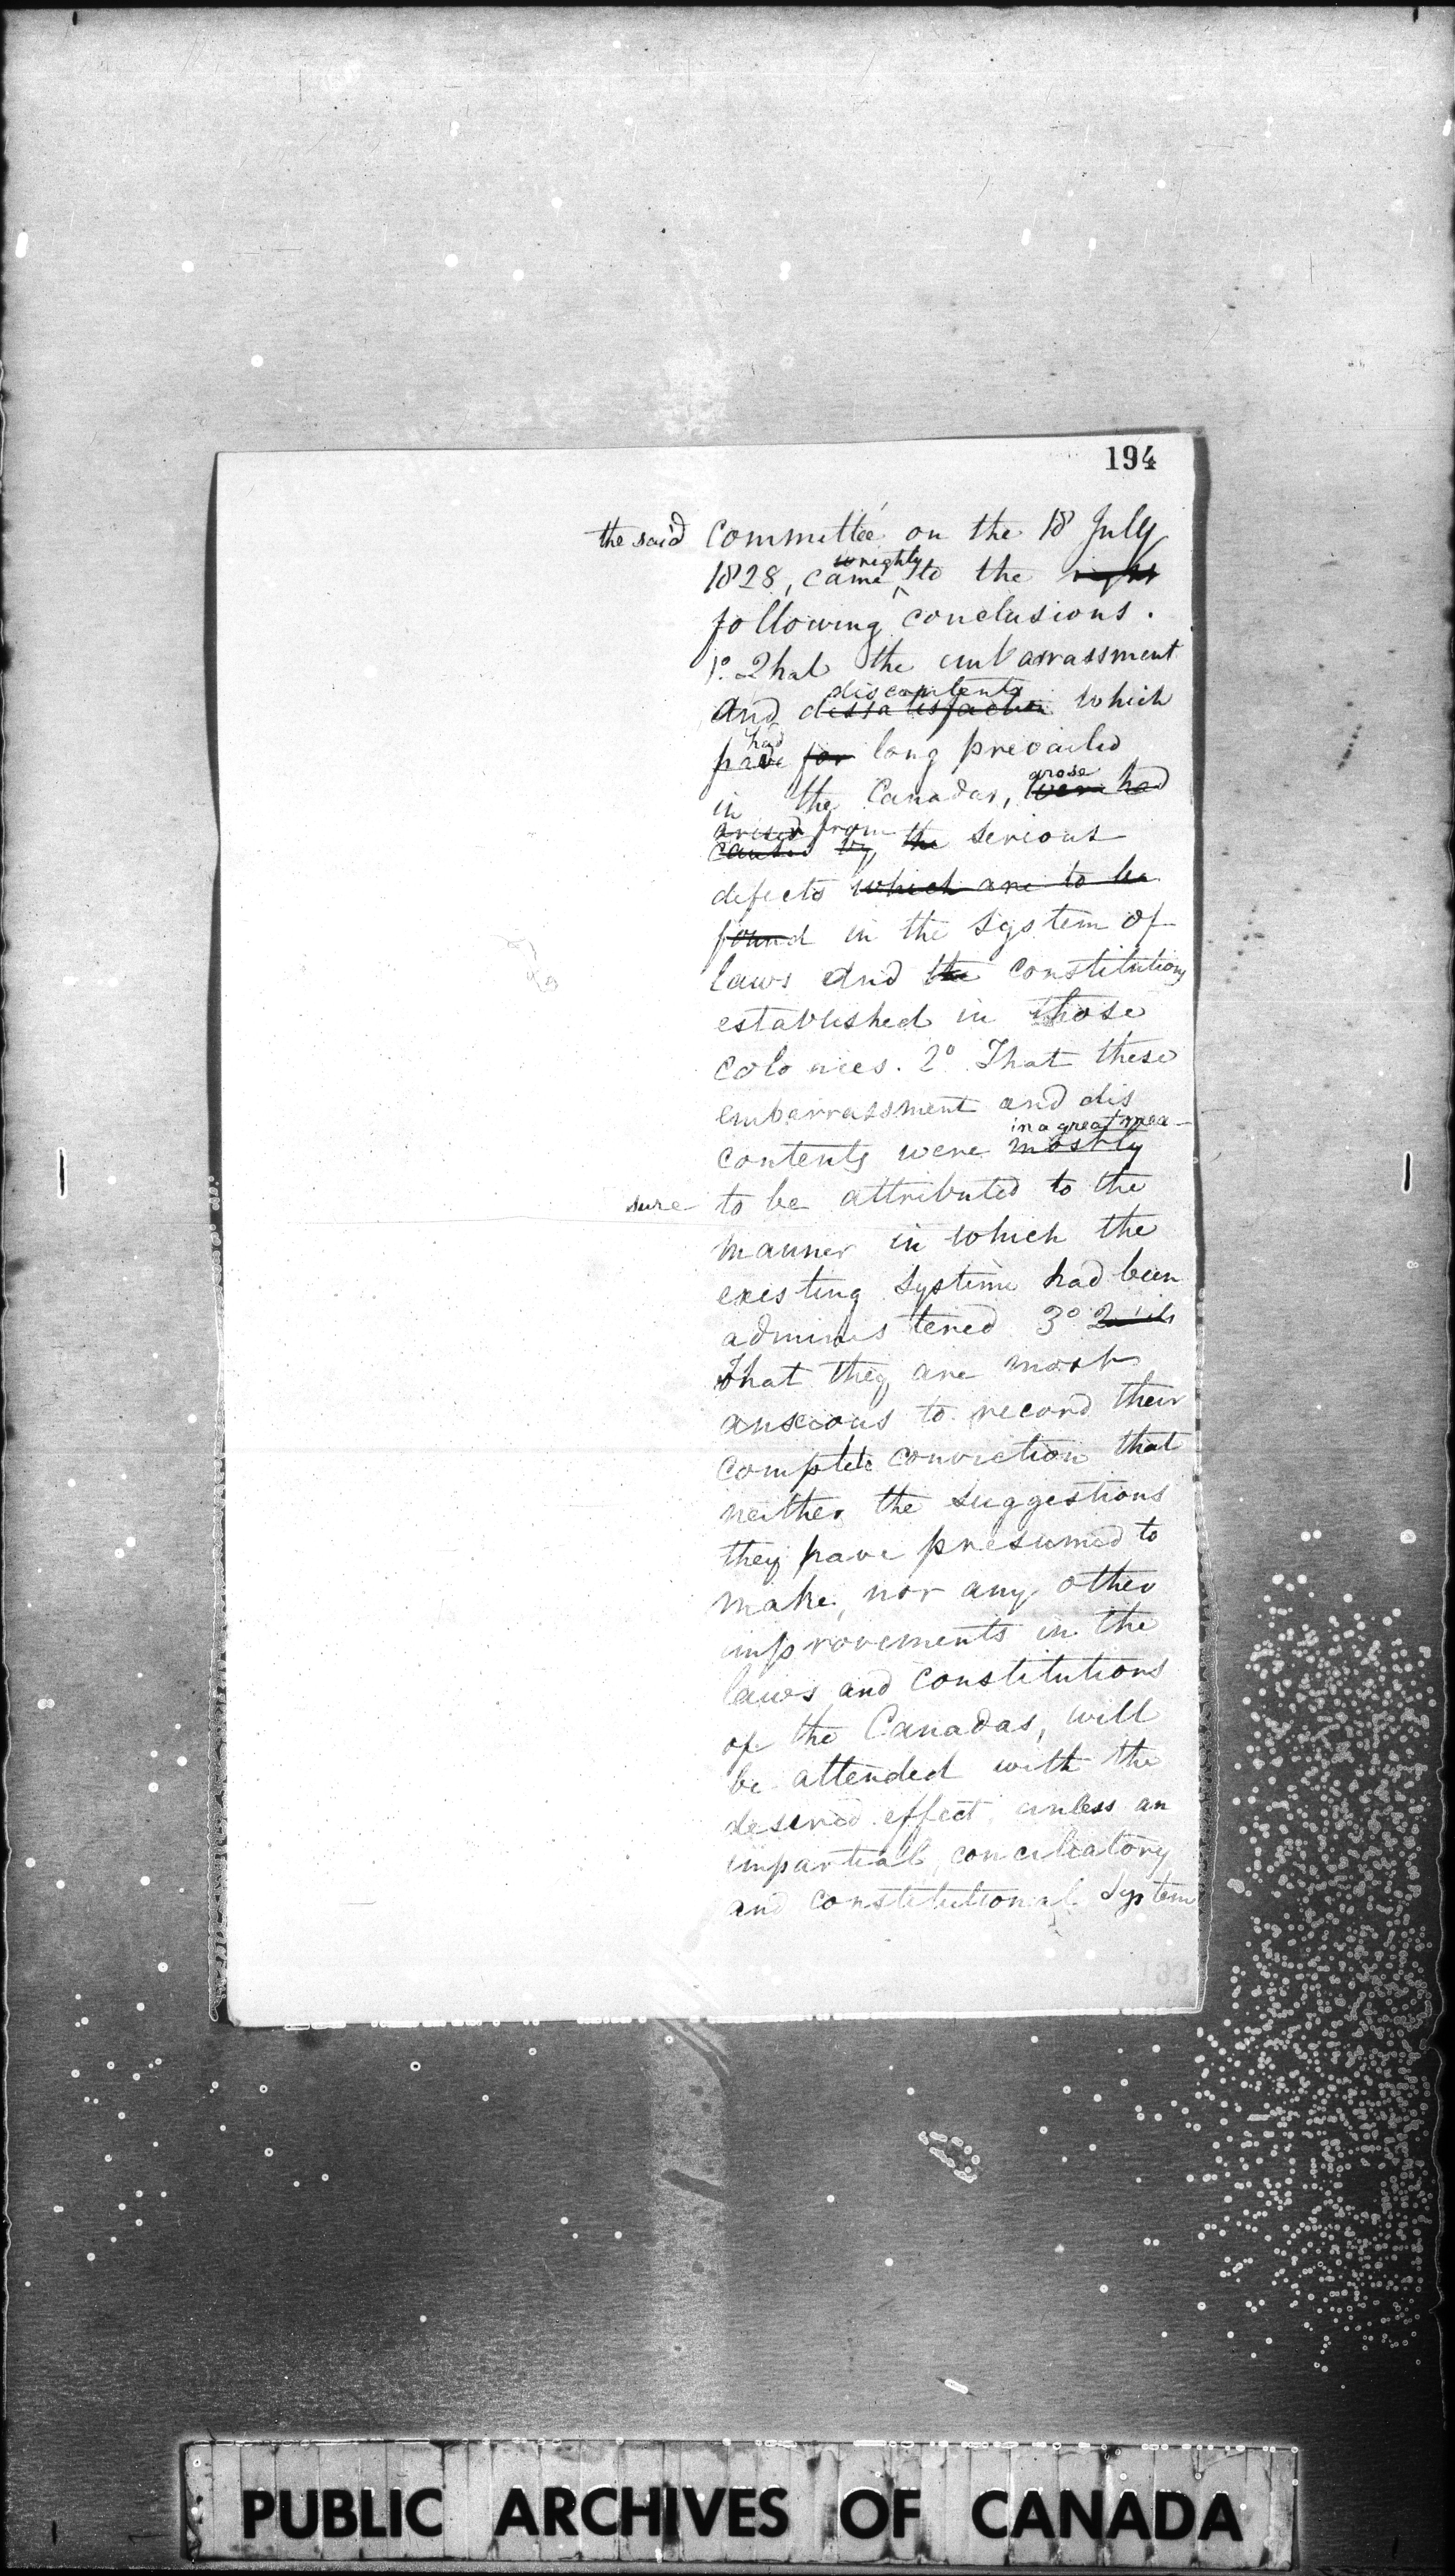 194
the said Committée on the 18 July
wrightly
1828, came to the right
following conclusions.
1º. That the embarrassment
discontents
and dissatisfaction which
had
have for long prevailed
arose
in the Canadas, were had
arised from
caused by, the serious
defects which are to be
found in the system of
laws and the constitutions
established in those
colonies. 2º That these
embarrassment and dis
in a great mea-
contents were mostly
sure to be attributed to the
manner in which the
existing système had been
administered 3º
That they are most
anscious to record their
complete conviction that
neither the suggestions
they have presumed to
make, nor any other
improvements in the
laws and constitutions
of the Canadas, will
be attended with the
desired effect, unless an
impartial, conciliatory
and constitutional system
PUBLIC ARCHIVES OF CANADA